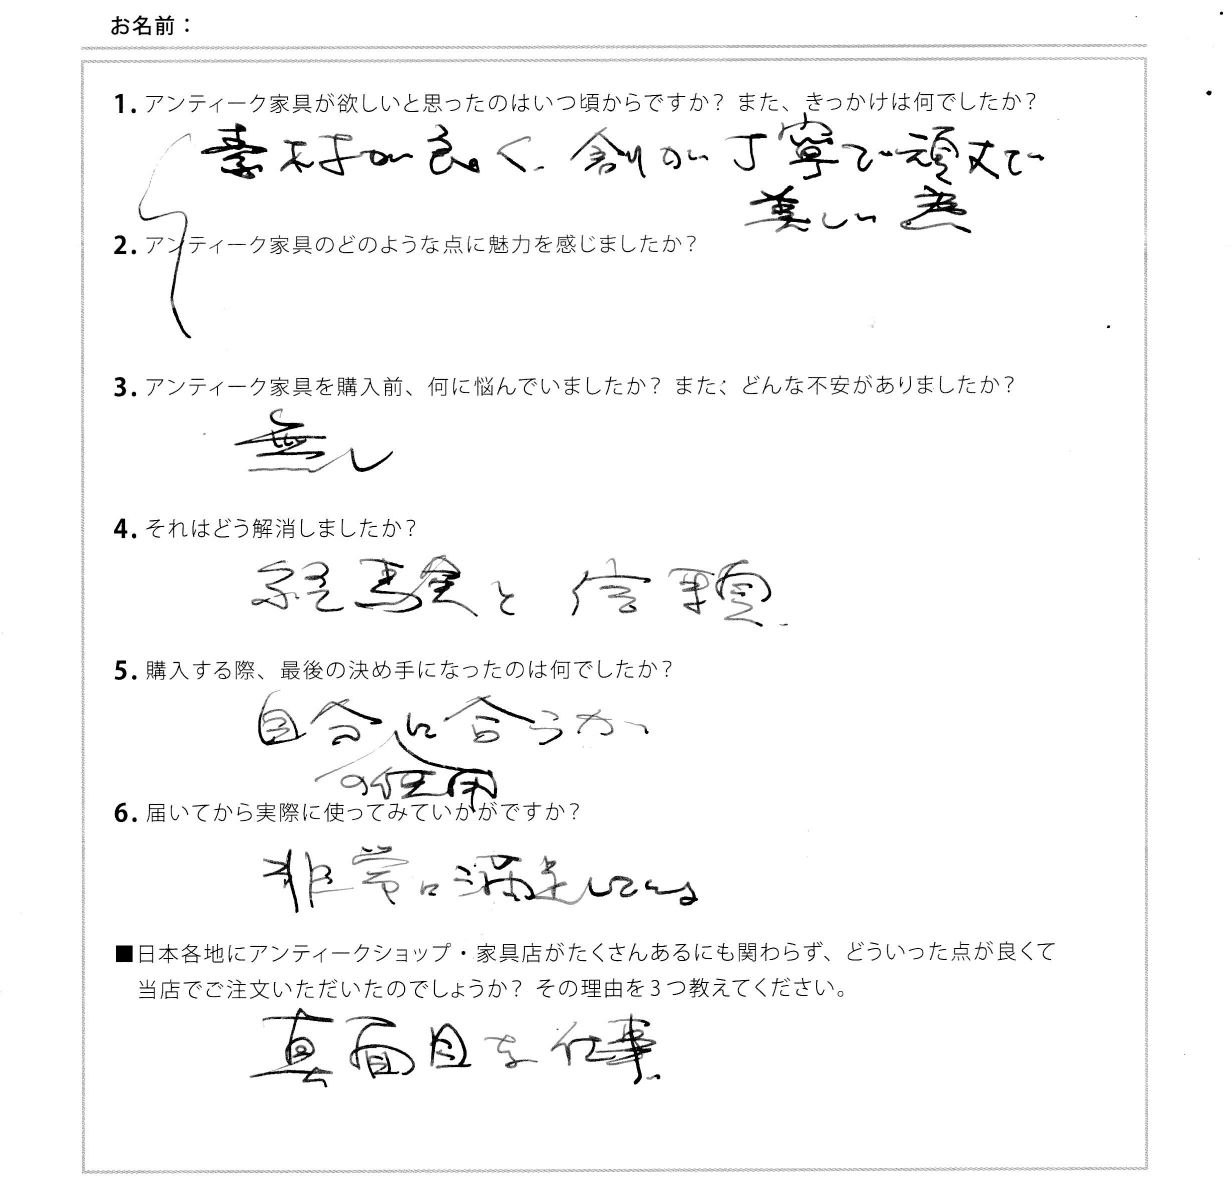 お名前：
1. アンティーク家具が欲しいと思ったのはいつ頃からですか？ また、きっかけは何でしたか？
素材が良く、創りが丁寧で頑丈で
美しい為
2. アンティーク家具のどのような点に魅力を感じましたか？
3. アンティーク家具を購入前、何に悩んでいましたか？ また、どんな不安がありましたか？
無し
4. それはどう解消しましたか？
経験と信頼.
5. 購入する際、最後の決め手になったのは何でしたか？
自分に合うか
の使用
6. 届いてから実際に使ってみていかがですか？
非常に満足している
■日本各地にアンティークショップ・家具店がたくさんあるにも関わらず、どういった点が良くて
当店でご注文いただいたのでしょうか？ その理由を3つ教えてください。
真面目な仕事.